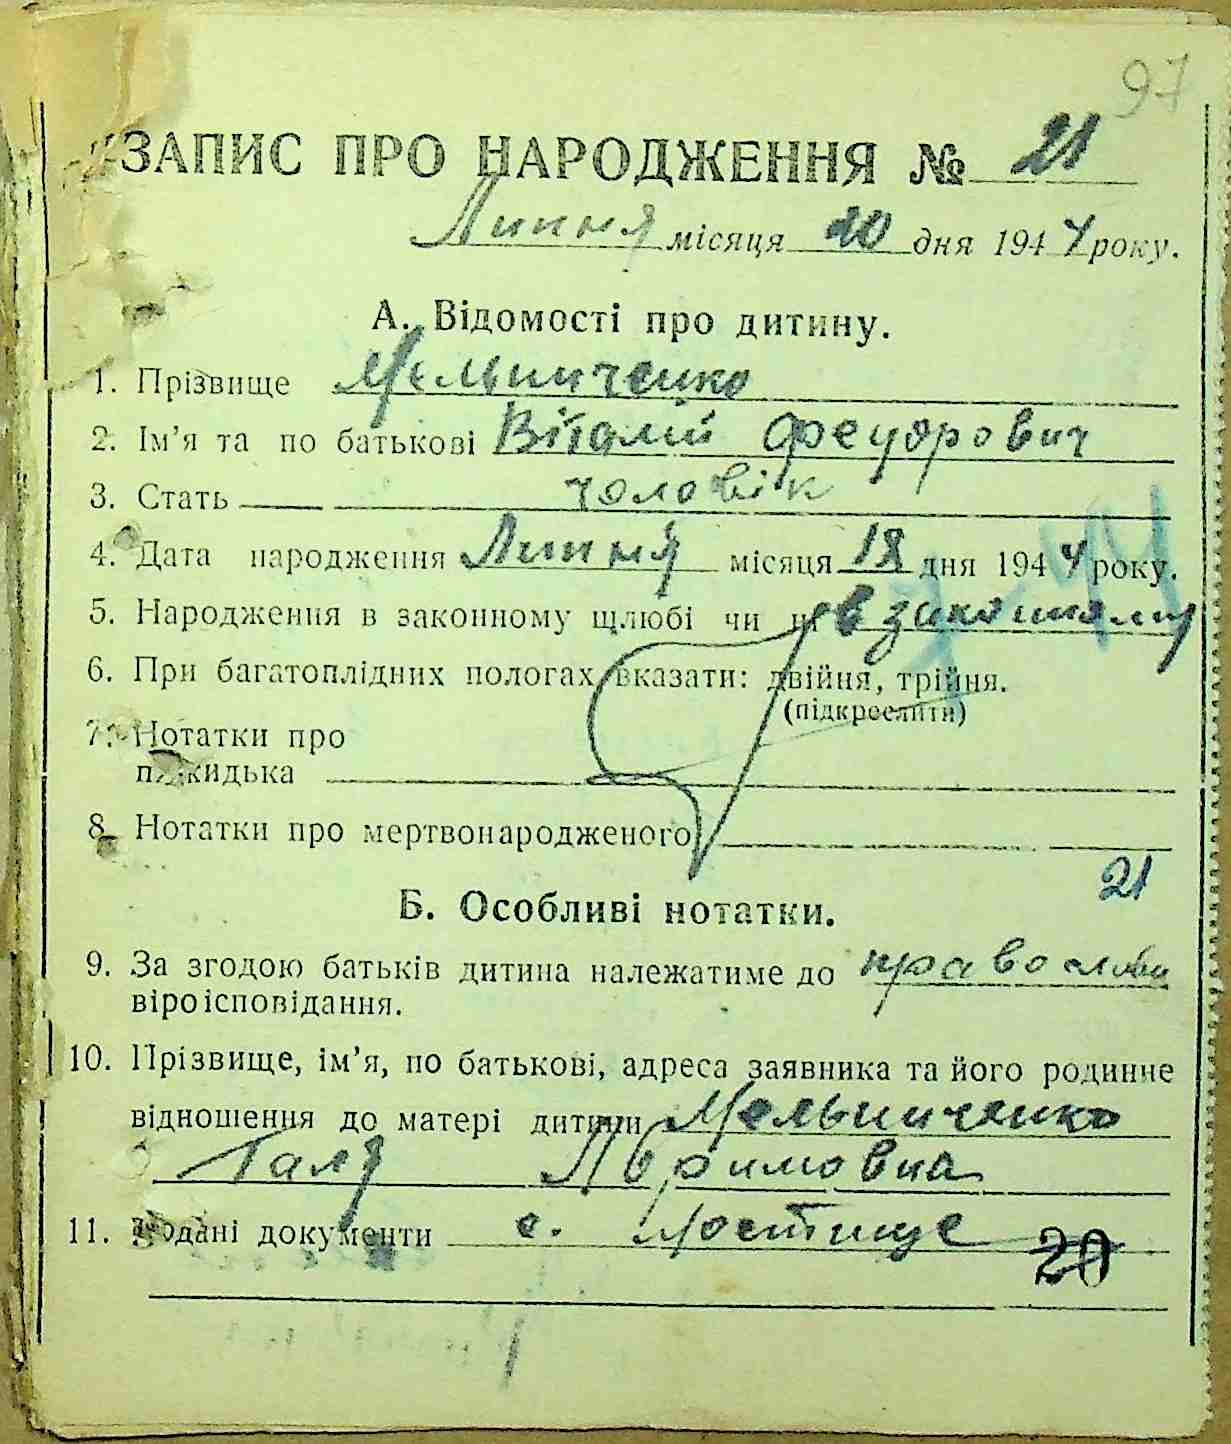 97
ЗАПИС ПРО НАРОДЖЕННЯ № 21
Липня місяця 20 дня 1944 року.
А. Відомості про дитину.
1. Прізвище Мельниченко
2. Ім'я та по батькові Віталій Феудорович
3. Стать чоловік
4. Дата народження Липня місяця 18 дня 1944 року.
5. Народження в законному щлюбі чи ні в законному
6. При багатоплідних пологах вказати: двійня, трійня.
(підкреслити)
7. Нотатки про
підкидька
8. Нотатки про мертвонародженого
21
Б. Особливі нотатки.
9. За згодою батьків дитина належатиме до
віроісповідання.
10. Прізвище, ім'я, по батькові, адреса заявника та його родинне
відношення до матері дитини Мельниченко
Галя
11. Подані документи с. Мостище
20